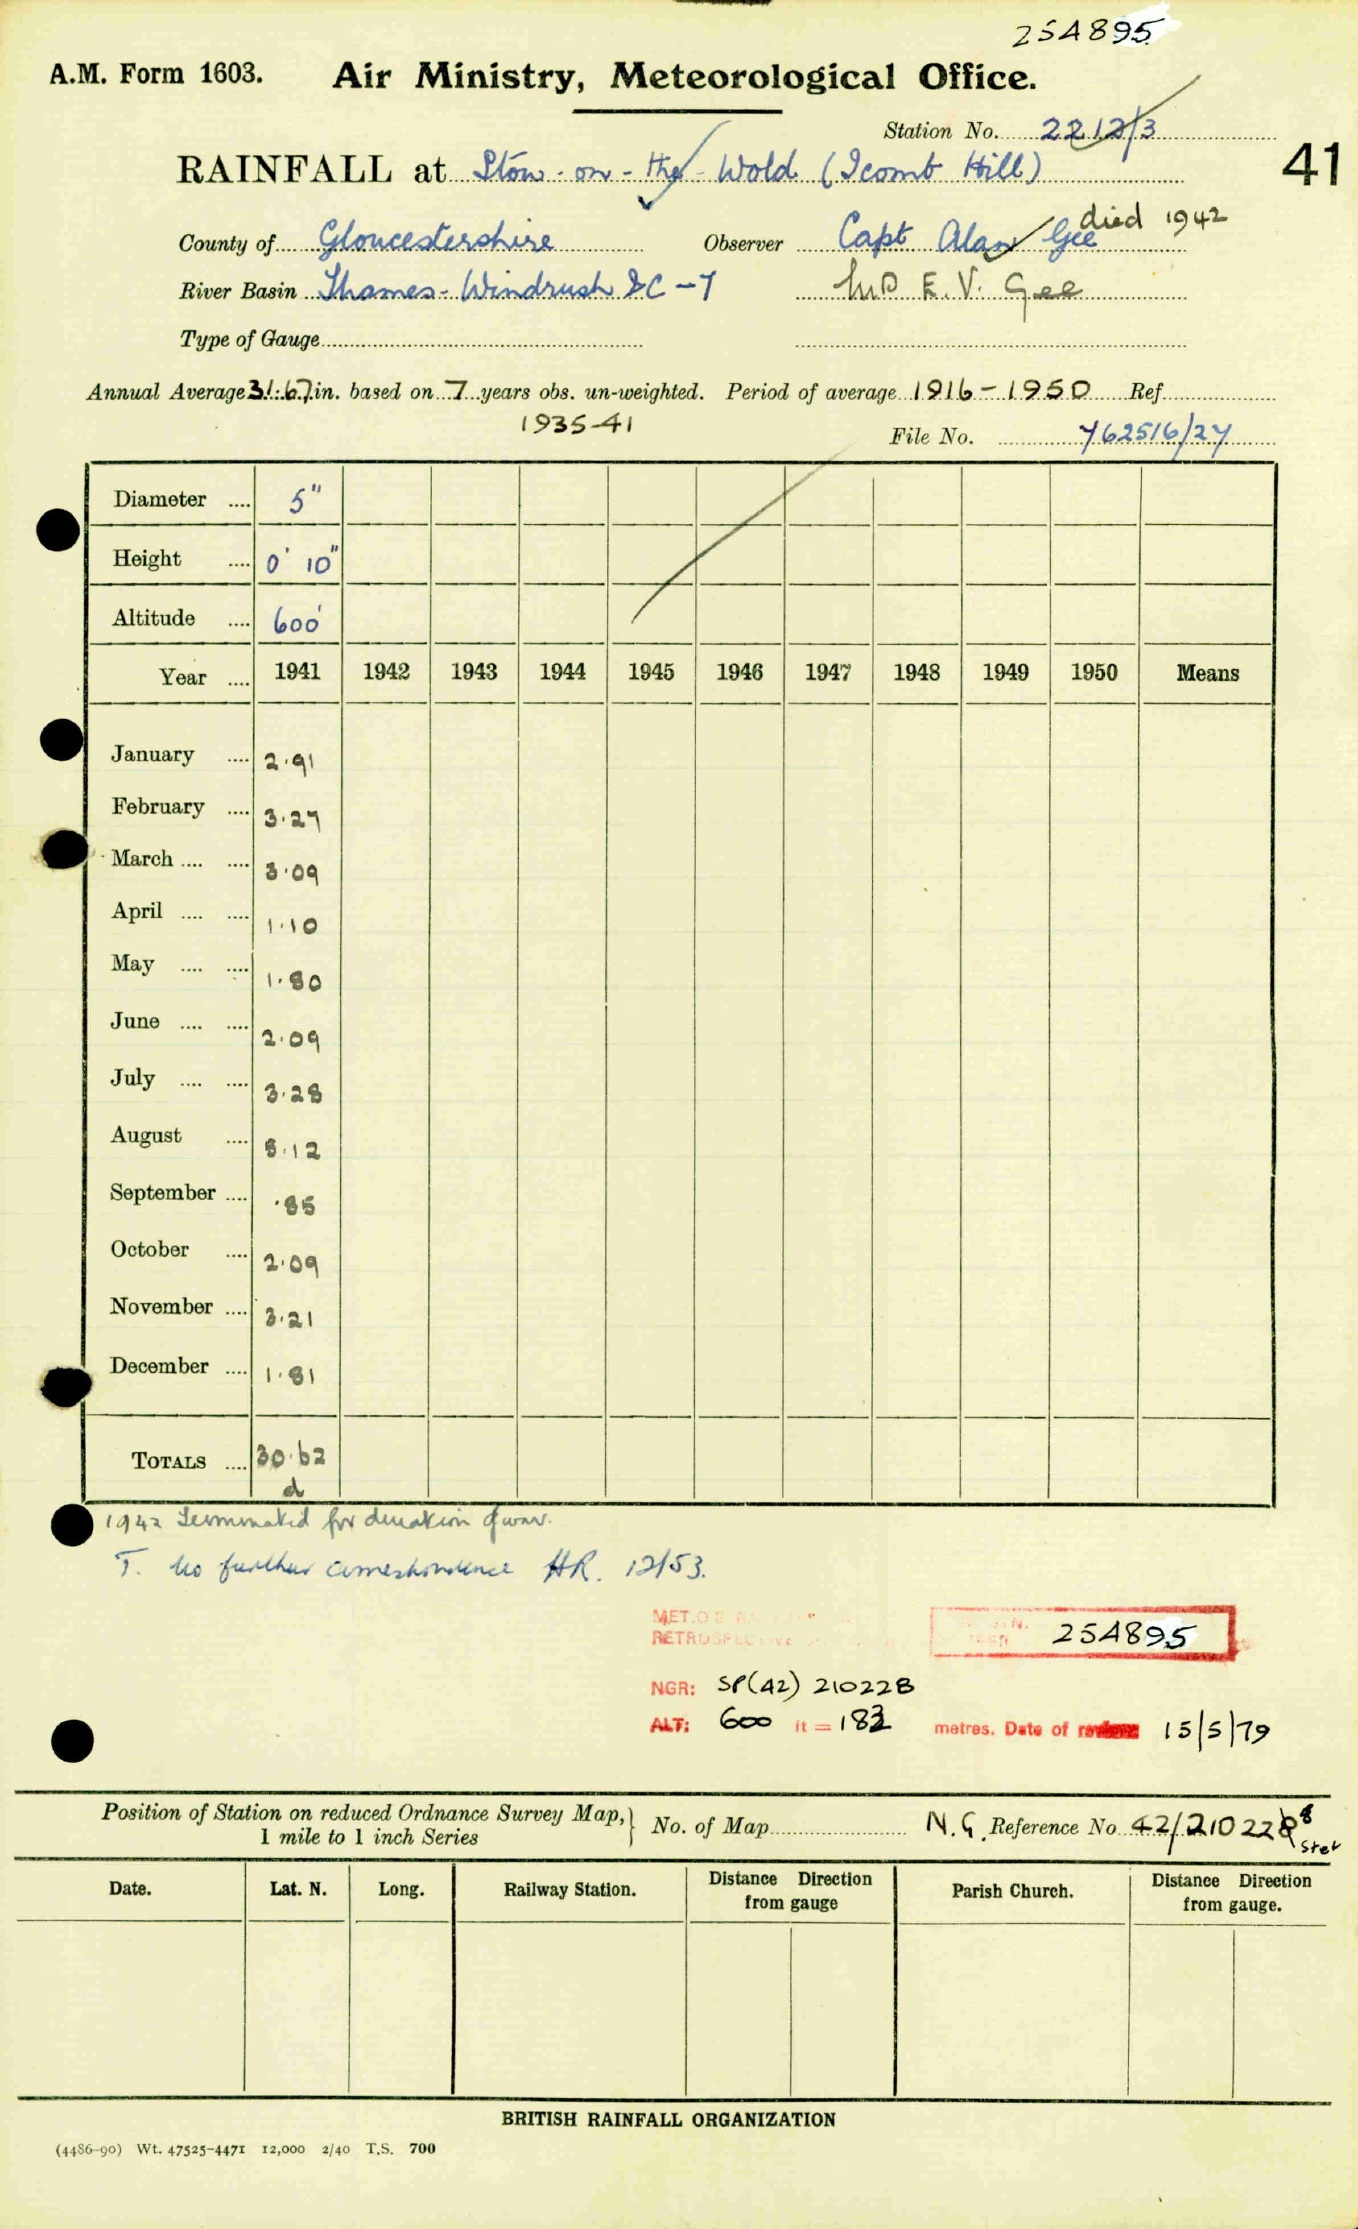 254895
A.M. Form 1603. Air Ministry, Meteorological Office.
Station No. 2212/3
41
RAINFALL at Stow-on-the-Wold (Icomb Hill)
County of Gloucestershire Observer Capt Alan Gee died 1942
River Basin Thames-Windrush &C-7 Mrs E.V. Gee
Type of Gauge
Annual Average 31.67 in. based on 7 years obs. un-weighted. Period of average 1916-1950 Ref.
1935-41
File No. 762516/27
Diameter .... 5"
Height .... 0' 10"
Altitude .... 600'
Year .... 1941 1942 1943 1944 1945 1946 1947 1948 1949 1950 Means
January .... 2.91
February .... 3.27
March .... .... 3.09
April .... .... 1.10
May .... .... 1.80
June .... .... 2.09
July .... .... 3.28
August .... 5.12
September .... .85
October .... 2.09
November .... 3.21
December .... 1.81
TOTALS .... 30.62
d
1942 Terminated for duration of war.
T. No further correspondence HR. 12/53.
MET.O.8
RETROSPECTIVE
254895
NGR: SP(42) 210228
ALT: 600 ft = 183 metres. Date of 15/5/79
Position of Station on reduced Ordnance Survey Map,
1 mile to 1 inch Series
No. of Map N.G. Reference No 42/210228 8
stet
Date. Lat. N. Long. Railway Station. Distance Direction
from gauge Parish Church. Distance Direction
from gauge.
BRITISH RAINFALL ORGANIZATION
(4486-90) Wt. 47525-4471 12,000 2/40 T.S. 700